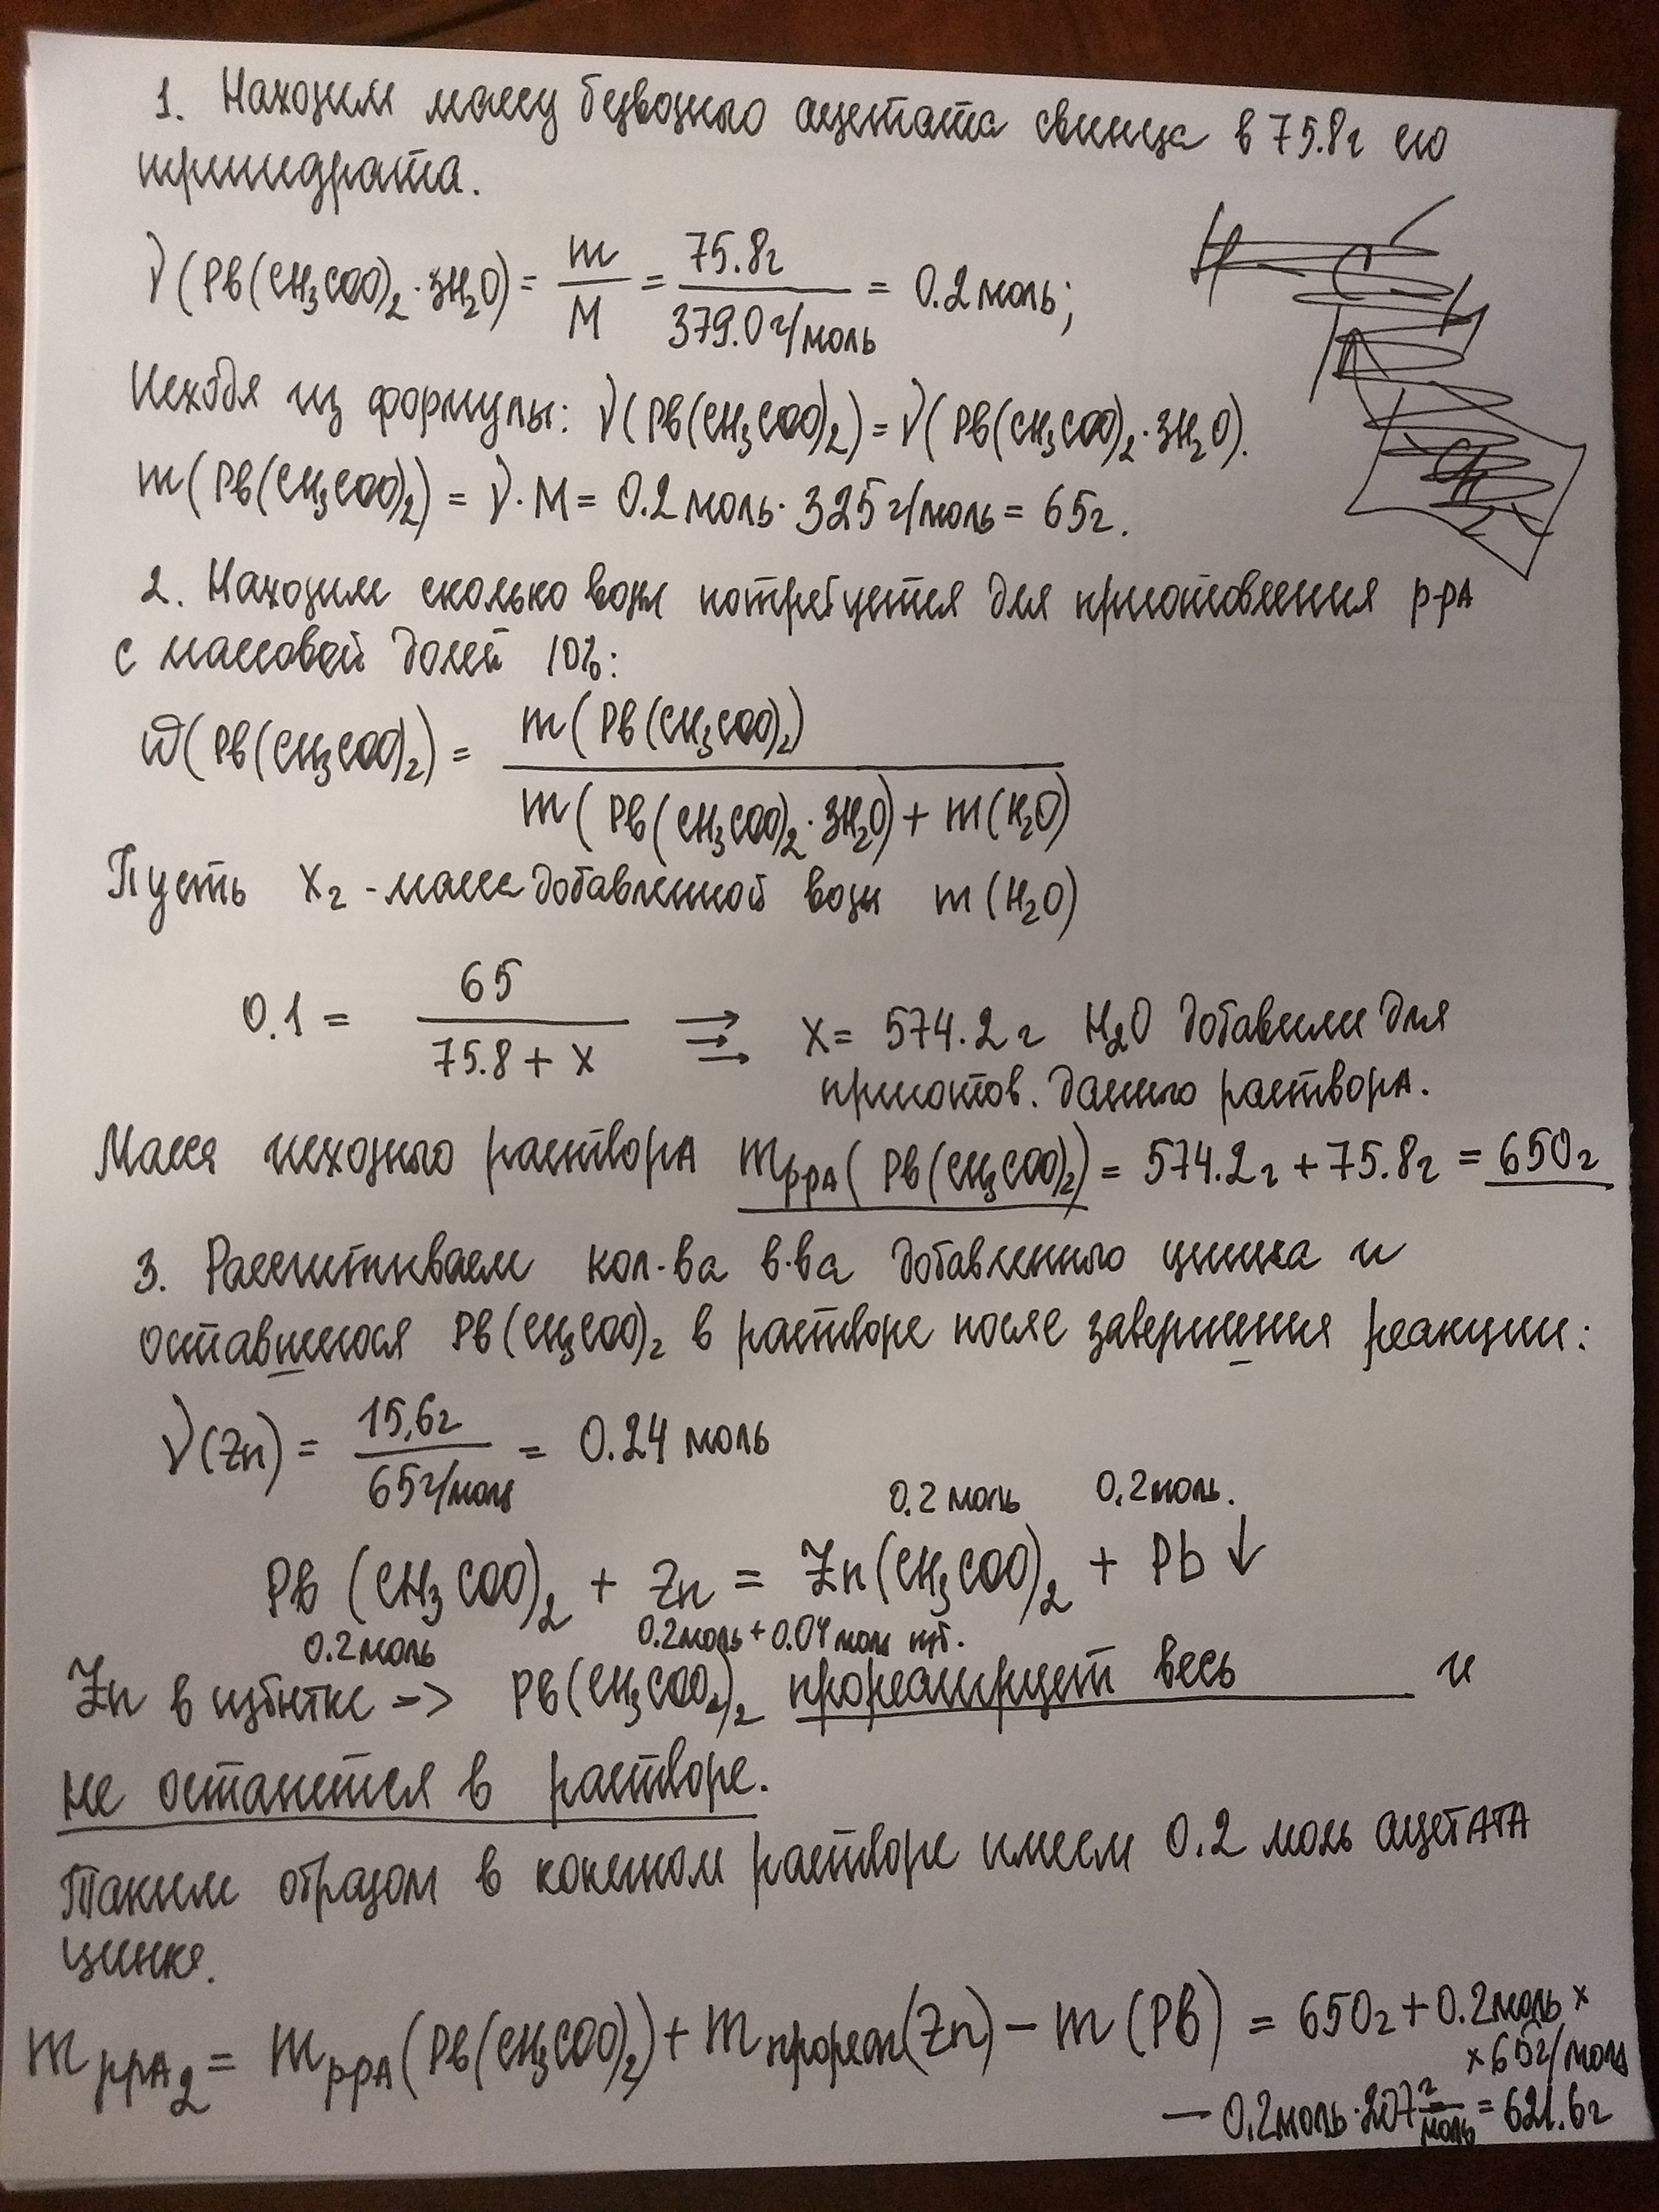 1. Находим массу безводного ацетата свинца в 75.8г его
тригидрата.
ν(Pb(CH₃COO)₂·3H₂O) = m/M = 75.8г/379.0г/моль = 0.2моль;
Исходя из формулы: ν(Pb(CH₃COO)₂) = ν(Pb(CH₃COO)₂·3H₂O).
m(Pb(CH₃COO)₂) = ν·M = 0.2моль·325г/моль = 65г.
2. Находим сколько воды потребуется для приготовления р-рА
с массовой долей 10%:
ω(Pb(CH₃COO)₂) = m(Pb(CH₃COO)₂) / m(Pb(CH₃COO)₂·3H₂O) + m(H₂O)
Пусть хг - масса добавленной воды m(H₂O)
0.1 = 65 / 75.8 + x ⇒ x = 574.2г H₂O добавили для
приготов. данного раствора.
Масса исходного раствора mррА(Pb(CH₃COO)₂) = 574.2г + 75.8г = 650г
3. Рассчитываем кол-ва в-ва добавленного цинка и
оставшегося Pb(CH₃COO)₂ в растворе после завершения реакции:
ν(Zn) = 15,6г/65г/моль = 0.24 моль
0.2 моль 0.2моль.
Pb(CH₃COO)₂ + Zn = Zn(CH₃COO)₂ + Pb↓
0.2моль 0.2моль + 0.04моль изб.
Zn в избытке => Pb(CH₃COO)₂ прореагирует весь и
не останется в растворе.
Таким образом в конечном растворе имеем 0.2 моль ацетАТА
цинка.
mррА₂ = mррА(Pb(CH₃COO)₂) + mпрореаг(Zn) − m(Pb) = 650г + 0.2моль ×
× 65г/моль
− 0.2моль·207г/моль = 621.6г